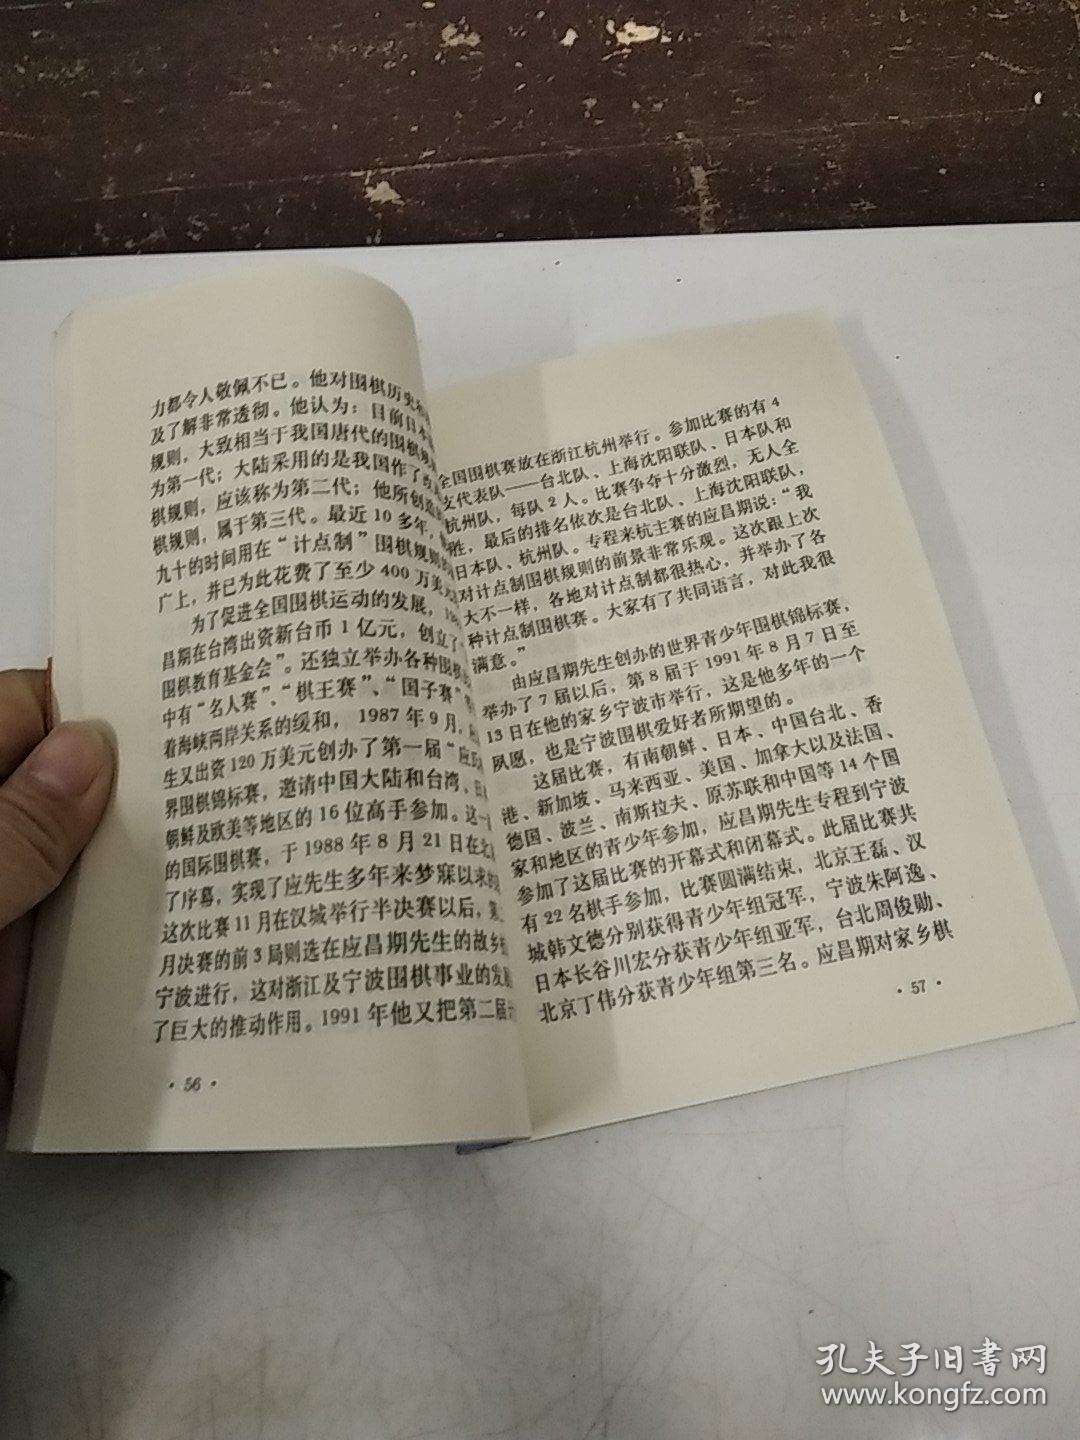 力都令人敬佩不已。他对围棋历史
及了解非常透彻。他认为：目前日本
规则，大致相当于我国唐代的围棋规
为第一代；大陆采用的是我国作了改
棋规则，应该称为第二代；他所创造
棋规则，属于第三代。最近10多年，
九十的时间用在“计点制”围棋规则
广上，并已为此花费了至少400万美
为了促进全国围棋运动的发展，19
昌期在台湾出资新台币1亿元，创立了
围棋教育基金会”。还独立举办各种围棋
中有“名人赛”、“棋王赛”、“国子赛”
着海峡两岸关系的缓和，1987年9月，
生又出资120万美元创办了第一届“应
界围棋锦标赛，邀请中国大陆和台湾、日
朝鲜及欧美等地区的16位高手参加。这一
的国际围棋赛，于1988年8月21日在北
了序幕，实现了应先生多年来梦寐以求
这次比赛11月在汉城举行半决赛以后，第
月决赛的前3局则选在应昌期先生的故乡
宁波进行，这对浙江及宁波围棋事业的发展
了巨大的推动作用。1991年他又把第二届
·56·
全国围棋赛放在浙江杭州举行。参加比赛的有4
支代表队——台北队、上海沈阳联队、日本队和
杭州队，每队2人。比赛争夺十分激烈，无人全
胜，最后的排名依次是台北队、上海沈阳联队，
日本队、杭州队。专程来杭主赛的应昌期说：“我
对计点制围棋规则的前景非常乐观。这次跟上次
大不一样，各地对计点制都很热心，并举办了各
种计点制围棋赛。大家有了共同语言，对此我很
满意。”
由应昌期先生创办的世界青少年围棋锦标赛，
举办了7届以后，第8届于1991年8月7日至
13日在他的家乡宁波市举行，这是他多年的一个
夙愿，也是宁波围棋爱好者所期望的。
这届比赛，有南朝鲜、日本、中国台北、香
港、新加坡、马来西亚、美国、加拿大以及法国、
德国、波兰、南斯拉夫、原苏联和中国等14个国
家和地区的青少年参加，应昌期先生专程到宁波
参加了这届比赛的开幕式和闭幕式。此届比赛共
有22名棋手参加，比赛圆满结束，北京王磊、汉
城韩文德分别获得青少年组冠军，宁波朱阿逸、
日本长谷川宏分获青少年组亚军，台北周俊勋、
北京丁伟分获青少年组第三名。应昌期对家乡棋
·57·
孔夫子旧書网
www.kongfz.com